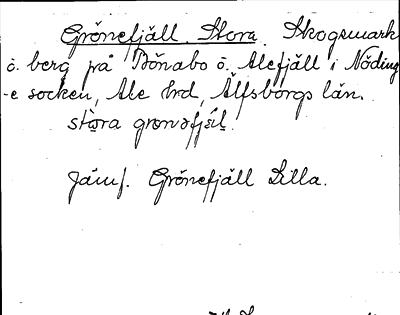 Grönefjäll, Stora. Skogsmark
o. berg på Bönabo o. Alefjäll i Nöding
-e socken, Ale hrd, Älfsborgs län.
stora grønəfjäl.
Jämf. Grönefjäll Lilla.